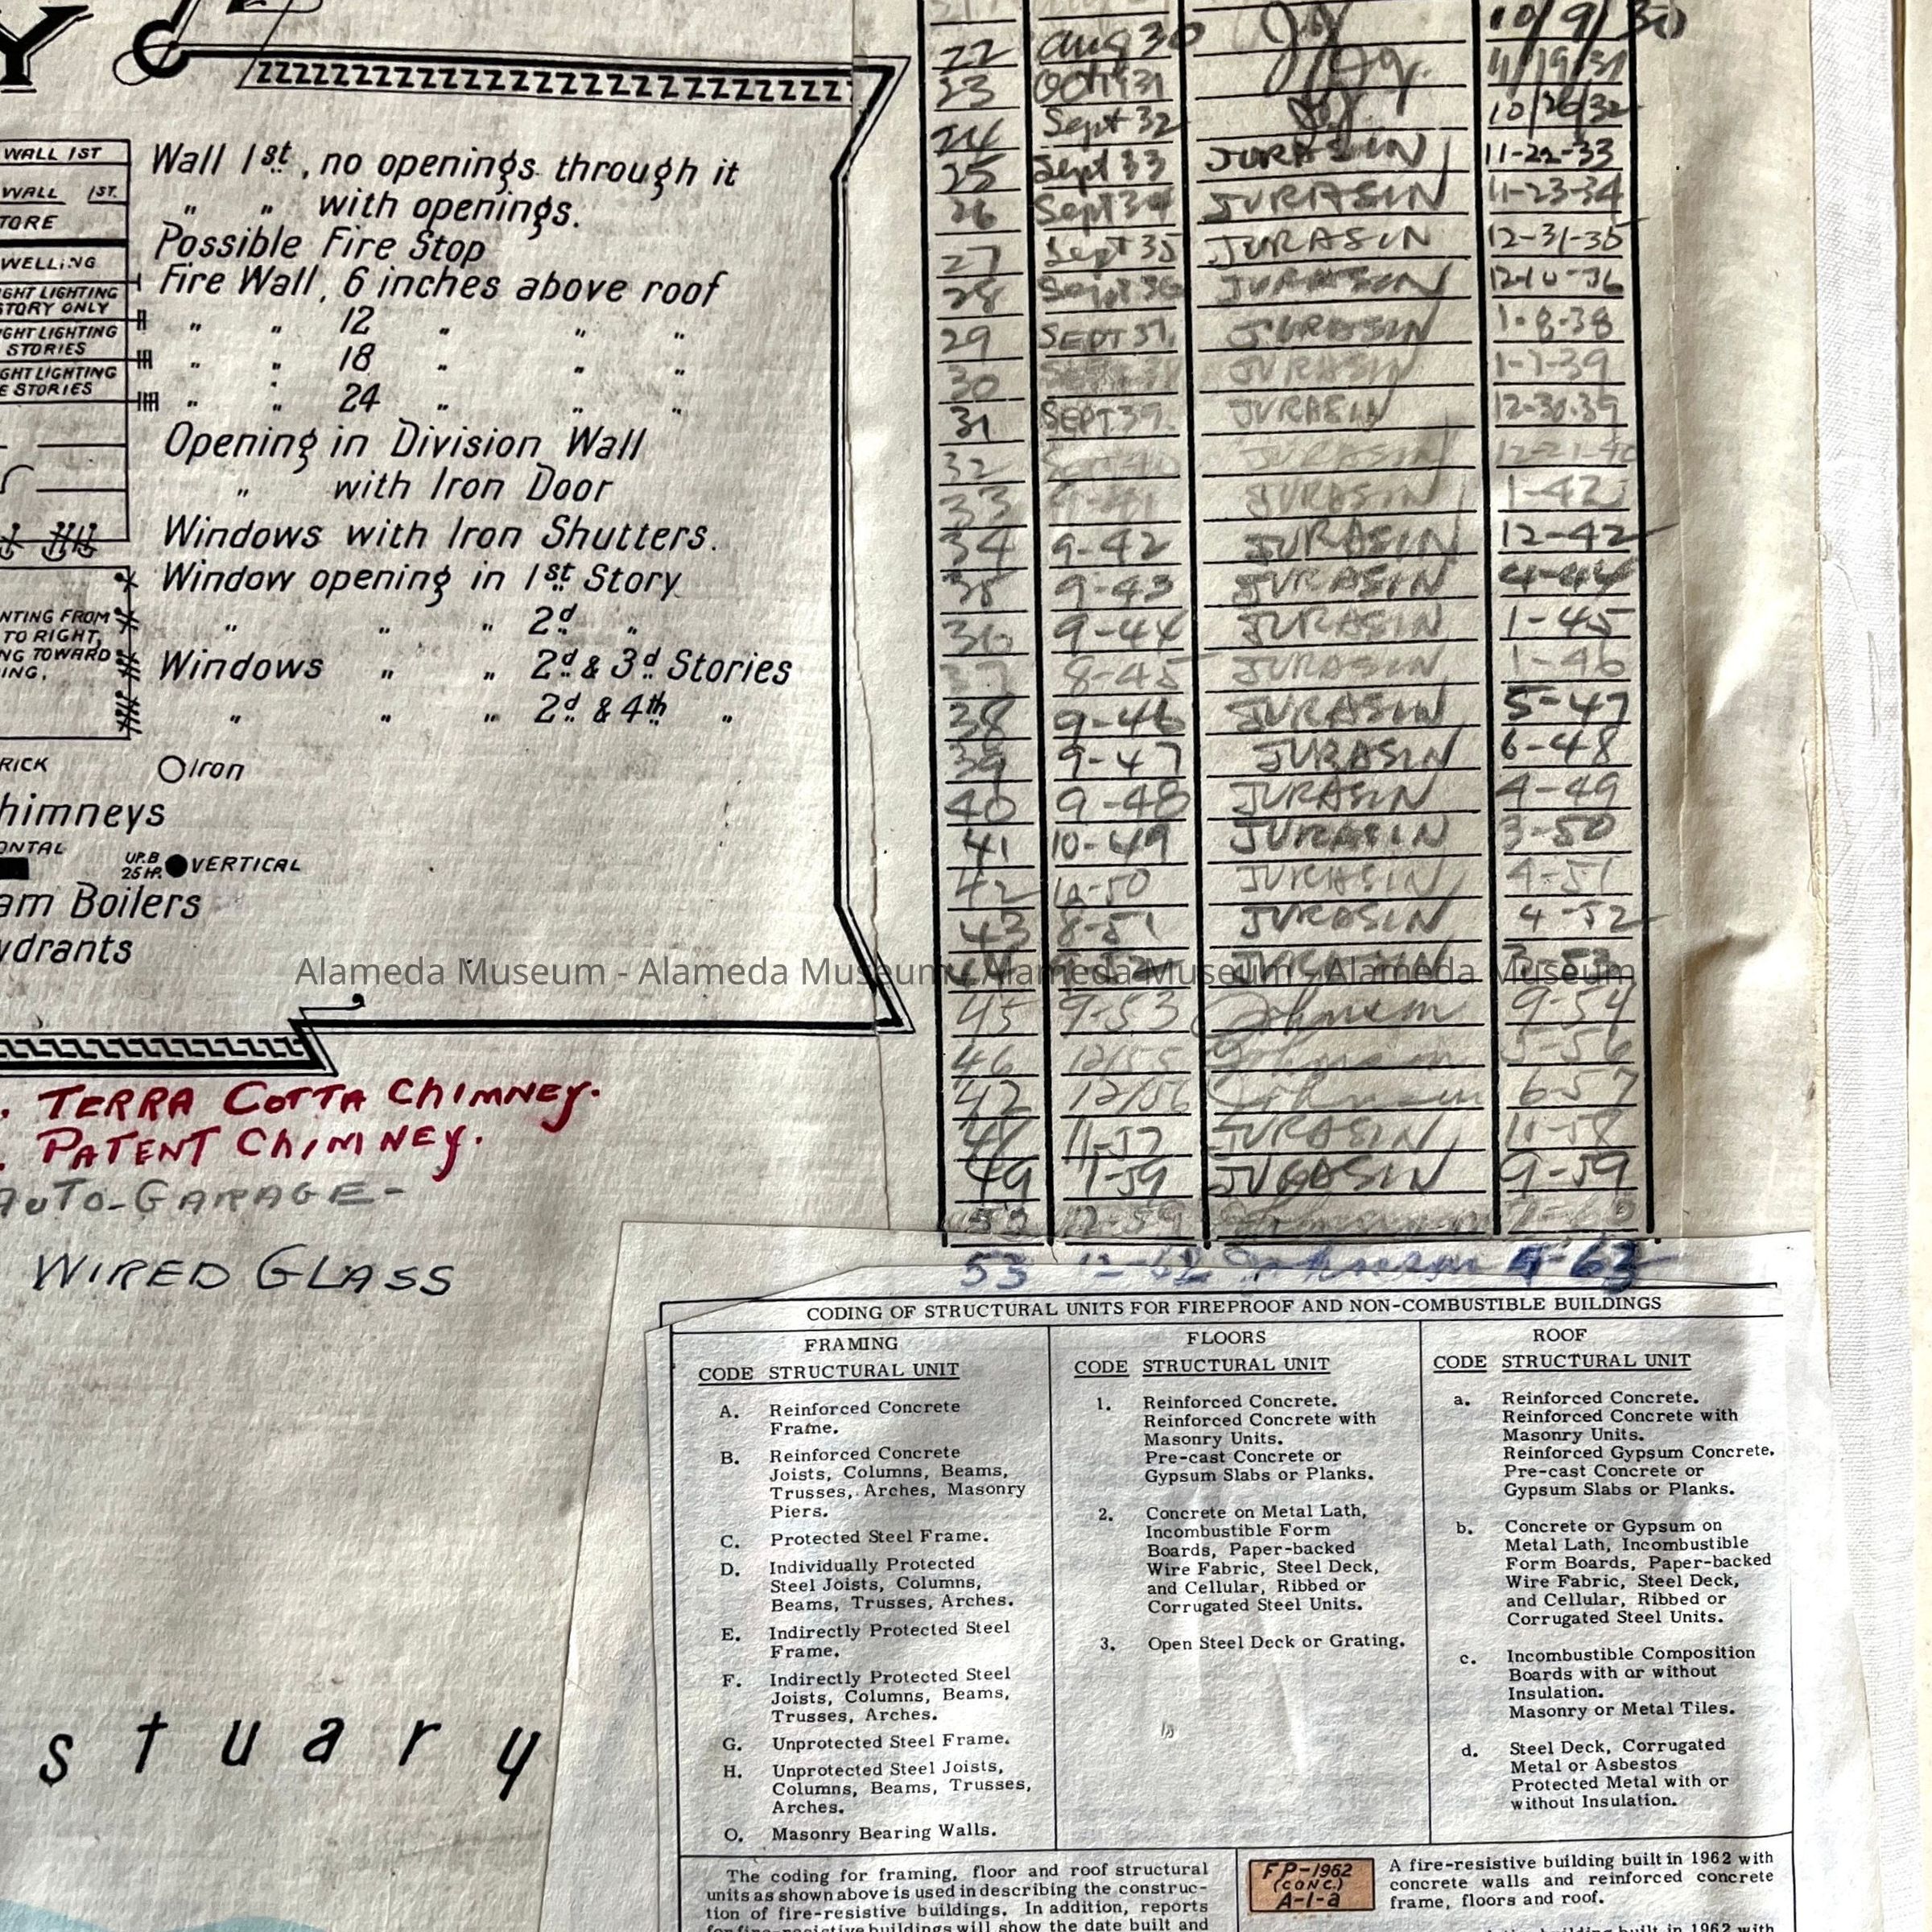 Y
WALL 1ST
WALL 1ST.
TORE
WELLING
GHT LIGHTING
STORY ONLY
GHT LIGHTING
STORIES
GHT LIGHTING
E STORIES
NTING FROM
TO RIGHT,
NG TOWARD
ING.
Wall 1st, no openings through it
" " with openings.
Possible Fire Stop
Fire Wall, 6 inches above roof
" " 12 " " "
" " 18 " " "
" " 24 " " "
Opening in Division Wall
" with Iron Door
Windows with Iron Shutters.
Window opening in 1st Story
" " " 2d "
Windows " " 2d & 3d Stories
" " " 2d & 4th "
RICK Iron
himneys
ONTAL UP.B 25 HP. VERTICAL
am Boilers
ydrants
. TERRA COTTA CHIMNEY.
. PATENT CHIMNEY.
AUTO-GARAGE-
WIRED GLASS
stuary
22 Aug 30 10/9/30
23 Oct 31 11/19/31
24 Sept 32 10/26/32
25 Sept 33 JURASIN 11-22-33
26 Sept 34 JURASIN 11-23-34
27 Sept 35 JURASIN 12-31-35
28 Sept 36 JURASIN 12-10-36
29 SEPT 37 JURASIN 1-8-38
30 JURASIN 1-7-39
31 SEPT 39. JURASIN 12-30-39
32 JURASIN 12-21-40
33 9-41 JURASIN 1-42
34 9-42 JURASIN 12-42
35 9-43 JURASIN 4-44
36 9-44 JURASIN 1-45
37 8-45 JURASIN 1-46
38 9-46 JURASIN 5-47
39 9-47 JURASIN 6-48
40 9-48 JURASIN 4-49
41 10-49 JURASIN 3-50
42 JURASIN 4-51
43 8-51 JURASIN 4-52
JURASIN
Alameda Museum - Alameda Museum - Alameda Museum - Alameda Museum
45 9-53 Johnson 9-54
46 12/55 Johnson 5-56
47 12/56 Johnson 6-57
48 11-57 JURASIN 11-58
49 1-59 JURASIN 9-59
12-59 Johnson
53 12-62 Johnson 5-63
CODING OF STRUCTURAL UNITS FOR FIREPROOF AND NON-COMBUSTIBLE BUILDINGS
FRAMING
CODE STRUCTURAL UNIT
A. Reinforced Concrete
Frame.
B. Reinforced Concrete
Joists, Columns, Beams,
Trusses, Arches, Masonry
Piers.
C. Protected Steel Frame.
D. Individually Protected
Steel Joists, Columns,
Beams, Trusses, Arches.
E. Indirectly Protected Steel
Frame.
F. Indirectly Protected Steel
Joists, Columns, Beams,
Trusses, Arches.
G. Unprotected Steel Frame.
H. Unprotected Steel Joists,
Columns, Beams, Trusses,
Arches.
O. Masonry Bearing Walls.
FLOORS
CODE STRUCTURAL UNIT
1. Reinforced Concrete.
Reinforced Concrete with
Masonry Units.
Pre-cast Concrete or
Gypsum Slabs or Planks.
2. Concrete on Metal Lath,
Incombustible Form
Boards, Paper-backed
Wire Fabric, Steel Deck,
and Cellular, Ribbed or
Corrugated Steel Units.
3. Open Steel Deck or Grating.
ROOF
CODE STRUCTURAL UNIT
a. Reinforced Concrete.
Reinforced Concrete with
Masonry Units.
Reinforced Gypsum Concrete.
Pre-cast Concrete or
Gypsum Slabs or Planks.
b. Concrete or Gypsum on
Metal Lath, Incombustible
Form Boards, Paper-backed
Wire Fabric, Steel Deck,
and Cellular, Ribbed or
Corrugated Steel Units.
c. Incombustible Composition
Boards with or without
Insulation.
Masonry or Metal Tiles.
d. Steel Deck, Corrugated
Metal or Asbestos
Protected Metal with or
without Insulation.
The coding for framing, floor and roof structural
units as shown above is used in describing the construc-
tion of fire-resistive buildings. In addition, reports
for fire-resistive buildings will show the date built and
FP-1962
(CONC.)
A-1-a
A fire-resistive building built in 1962 with
concrete walls and reinforced concrete
frame, floors and roof.
building built in 1962 with